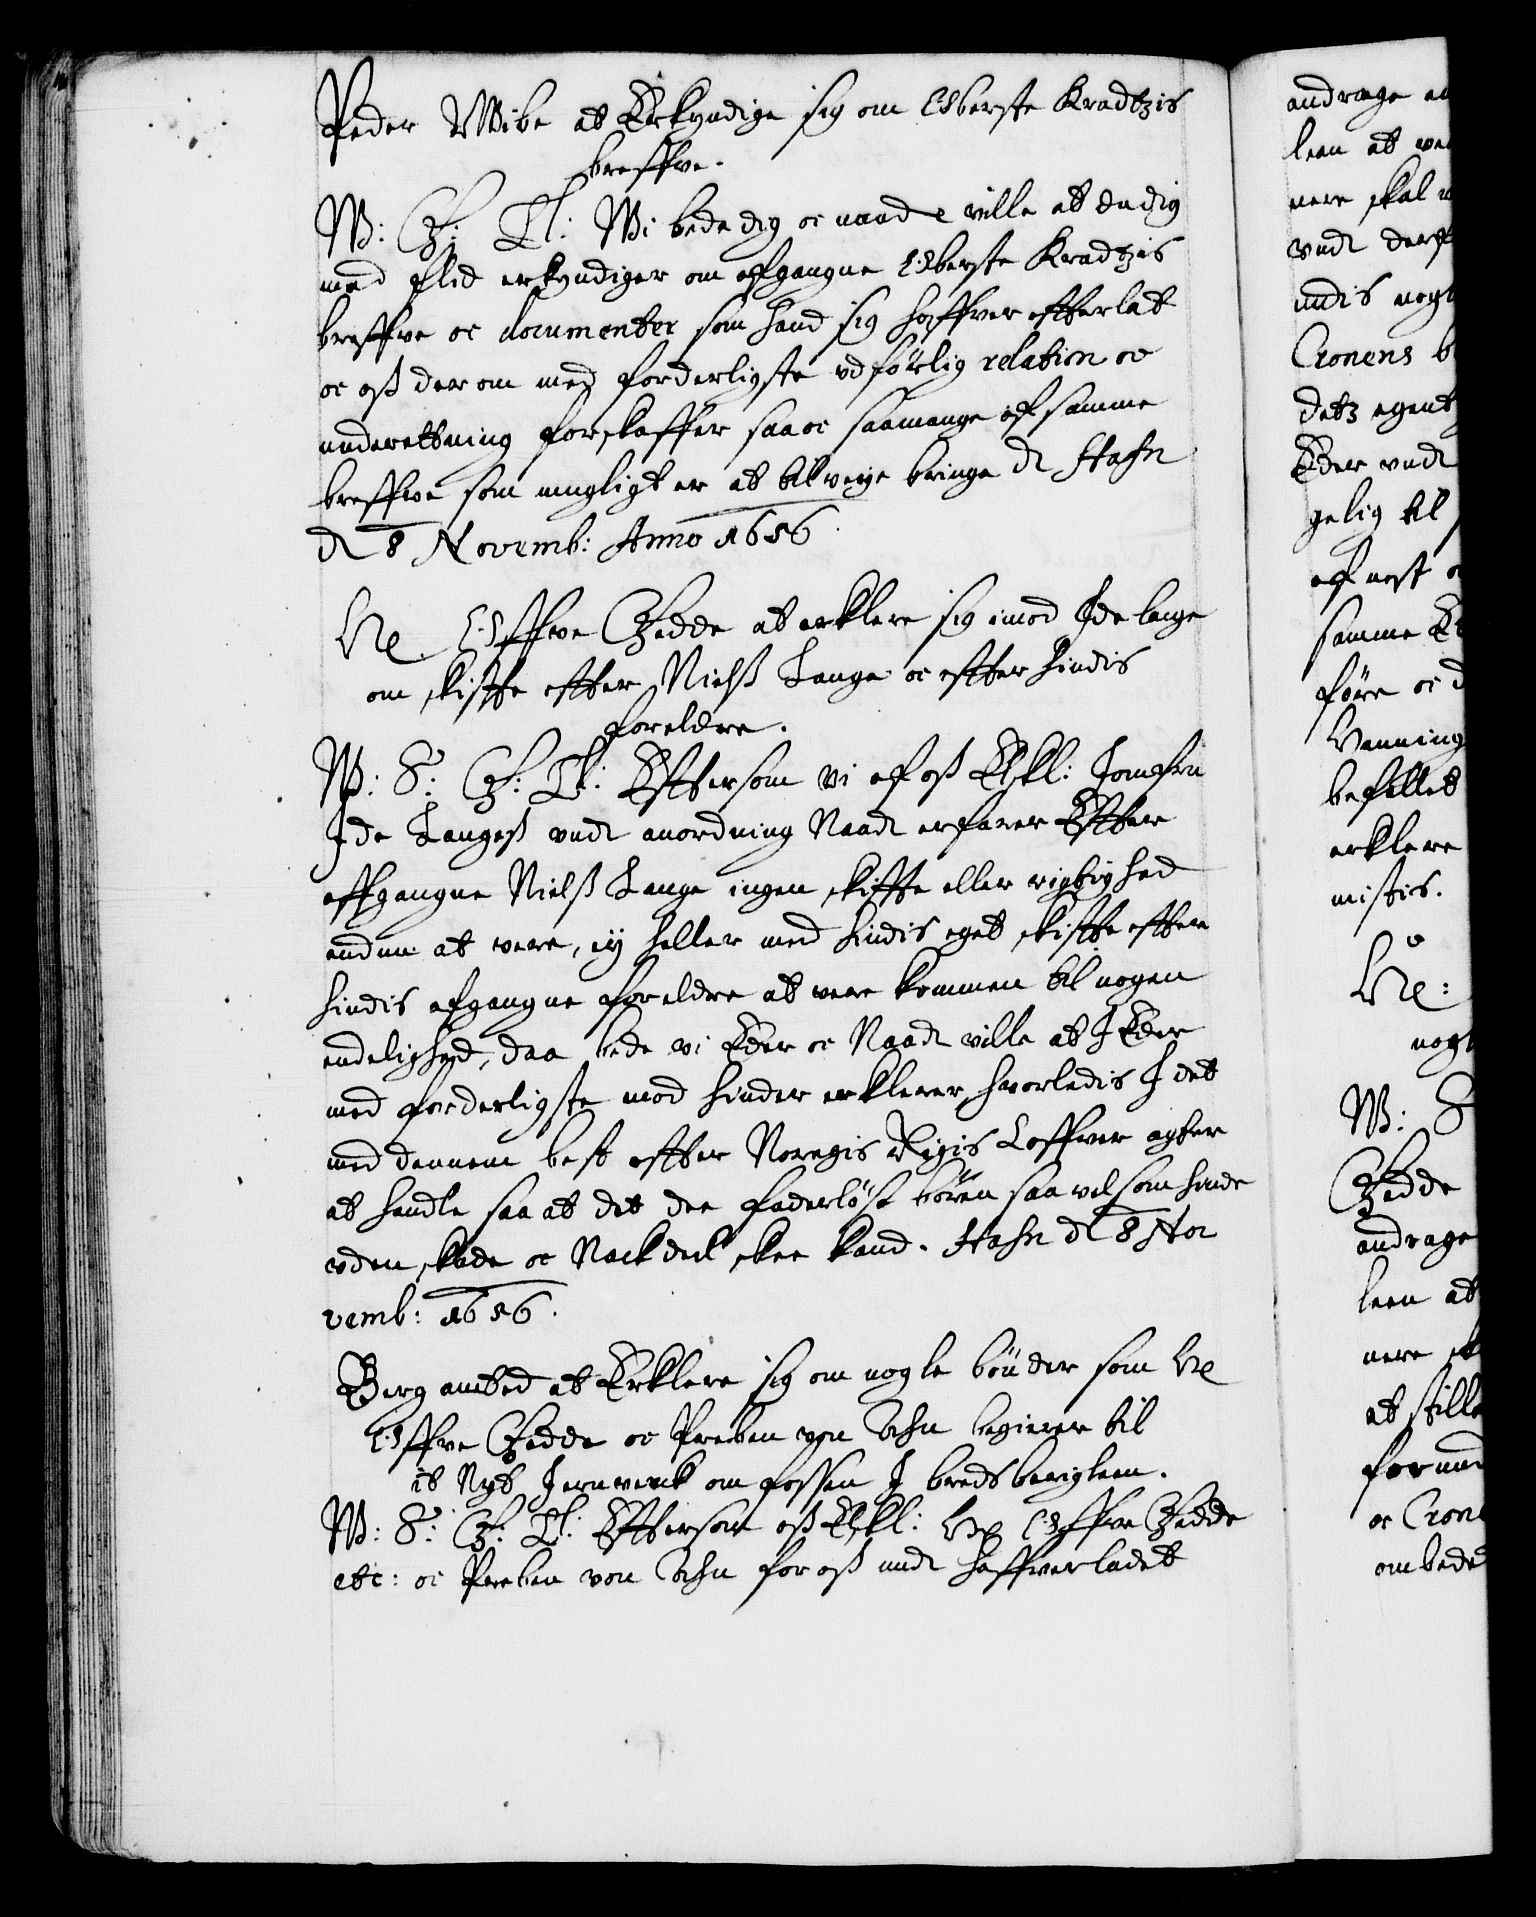 Peder Wibe at Erkyndige sig om Oberste Kradtzis
breffve.
W: G: Tl: Wi bede dig oc naad ville at du dig
med flid erkyndiger om afgangne Oberste Kradtzis
breffve oc documenter som hand sig haffver efterlat
oc oß der om med forderligste udförlig relation oc
underettning forskaffer saa oc saamange af samme
breffwe som mugligt er at til veye bringe Hafn
d 8 Novemb: Anno 1656.
Offwe Gedde at erklere sig imod Ide lange
om skiffte effter Nielß Lange oc effter hindis
foreldre.
W: S: G: Tl: Efftersom vi af oß Elskl: Jomfru
Ide Langeß und anordning Naad erfarer Effter
affgangne Nielß Lange ingen skiffte eller rigtighed
endnu at were, ey heller med hindis eget skiffte effter
hindis afgangne foreldre at were kommen til nogen
endelighed, daa bede vi Eder oc Naad ville at I Eder
med forderligste mod hinder erklerer, hvorledis I det
med dennem best effter Norgis Rigis Loffwer agter
at handle saa at det den faderlöse börn saa vel som hinde
uden skade oc Nackdeel skee kand. Hafn d 8 No
vemb: 1656.
Berg ambted at Erklere sig om nogle bönder som
Offve Gedde oc Preben von Ahn begierer til
it Nyt Jernverck om fossen I bradsbergleen.
W: S: G: Tl: Efftersom oß Elskl: Offve Gedde
etc: oc Preben von Ahn for oß und haffver ladet
andrage
leen at
nere skal
und
nogl
Cronens
detz egent
Eder und
gelig til
af
samme
före oc
Vanning
befattet
erklere
mistis.
nogl
W: S
Gedde
andrage
leen at
nere sk
at stille
fornend
oc Cron
ombede